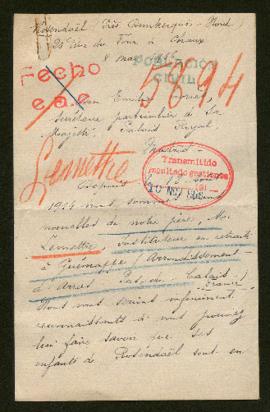 Rosendaël Près Dunkerque - Nord
26 rue du Four à Chaux
8 mai
POBLACIÓN
CIVIL
Fecho
e.a.e.
5894
Emilio
Secrétaire particulier de Sa
Majesté
Lemettre
Transmitido
resultado gestiones
10 NOV
Depuis
1914 nous sommes sans
nouvelles de notre père, Mr
Lemettre, instituteur en retraite
à Guémappe, Arrondissement
d'Arras Pas de Calais
France
Nous vous serions infiniment
reconnaissants si vous pouviez
lui faire savoir que ses
enfants de Rosendaël sont en